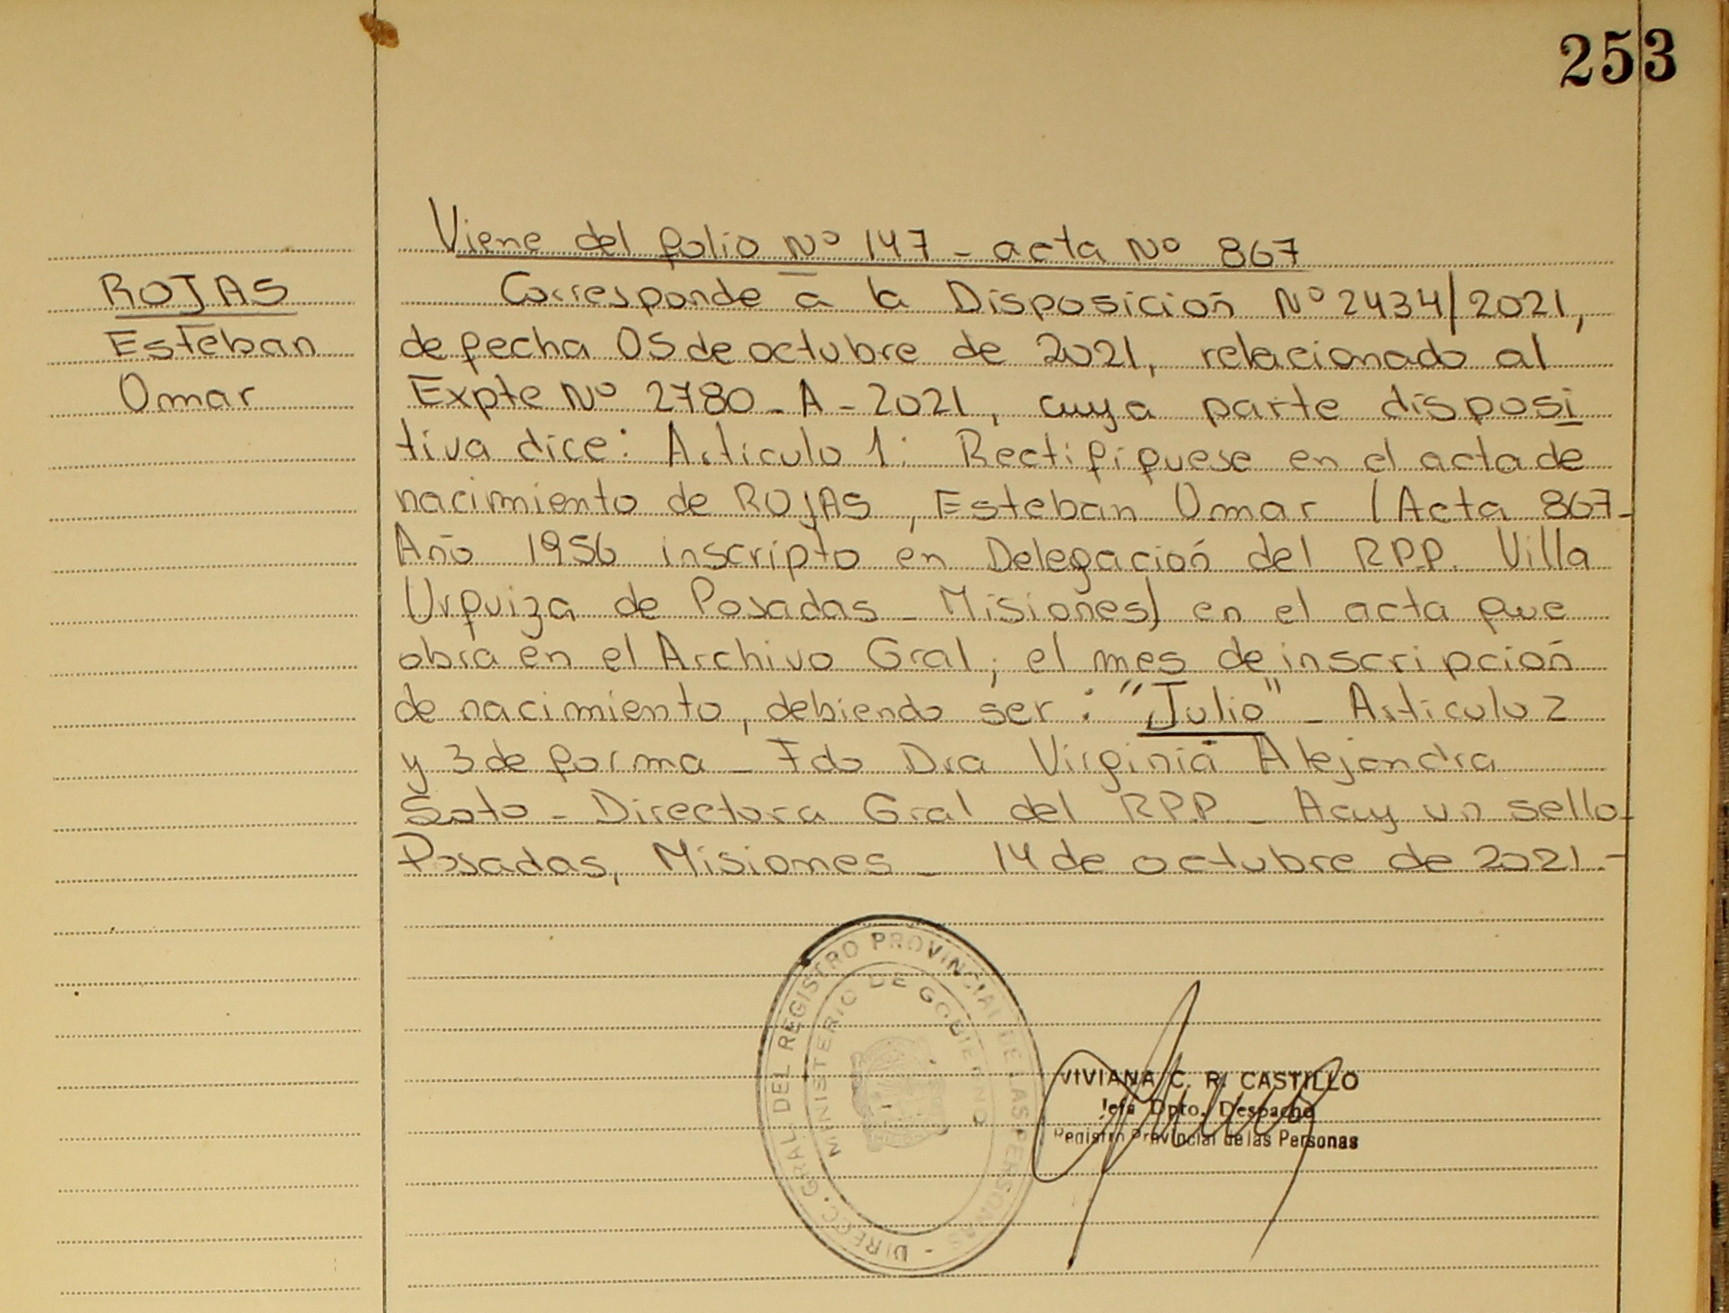 253
ROJAS
Esteban
Omar
Viene del folio Nº 147 - acta Nº 867
Corresponde a la Disposición Nº 2434/2021,
de fecha 05 de octubre de 2021, relacionado al
Expte Nº 2780 - A - 2021, cuya parte disposi
tiva dice: Artículo 1: Rectifíquese en el acta de
nacimiento de ROJAS, Esteban Omar (Acta 867-
Año 1956 inscripto en Delegación del R.P.P. Villa
Urquiza de Posadas - Misiones) en el acta que
obra en el Archivo Gral; el mes de inscripción
de nacimiento, debiendo ser: "Julio" - Artículo 2
y 3 de forma - Fdo Dra Virginia Alejandra
Soto - Directora Gral del R.P.P. - Hay un sello-
Posadas, Misiones - 14 de octubre de 2021.-
DIREC. GRAL. DEL REGISTRO PROVINCIAL DE LAS PERSONAS -
MINISTERIO DE GOBIERNO
VIVIANA C. R. CASTILLO
Jefa Dpto. Despacho
Registro Provincial de las Personas